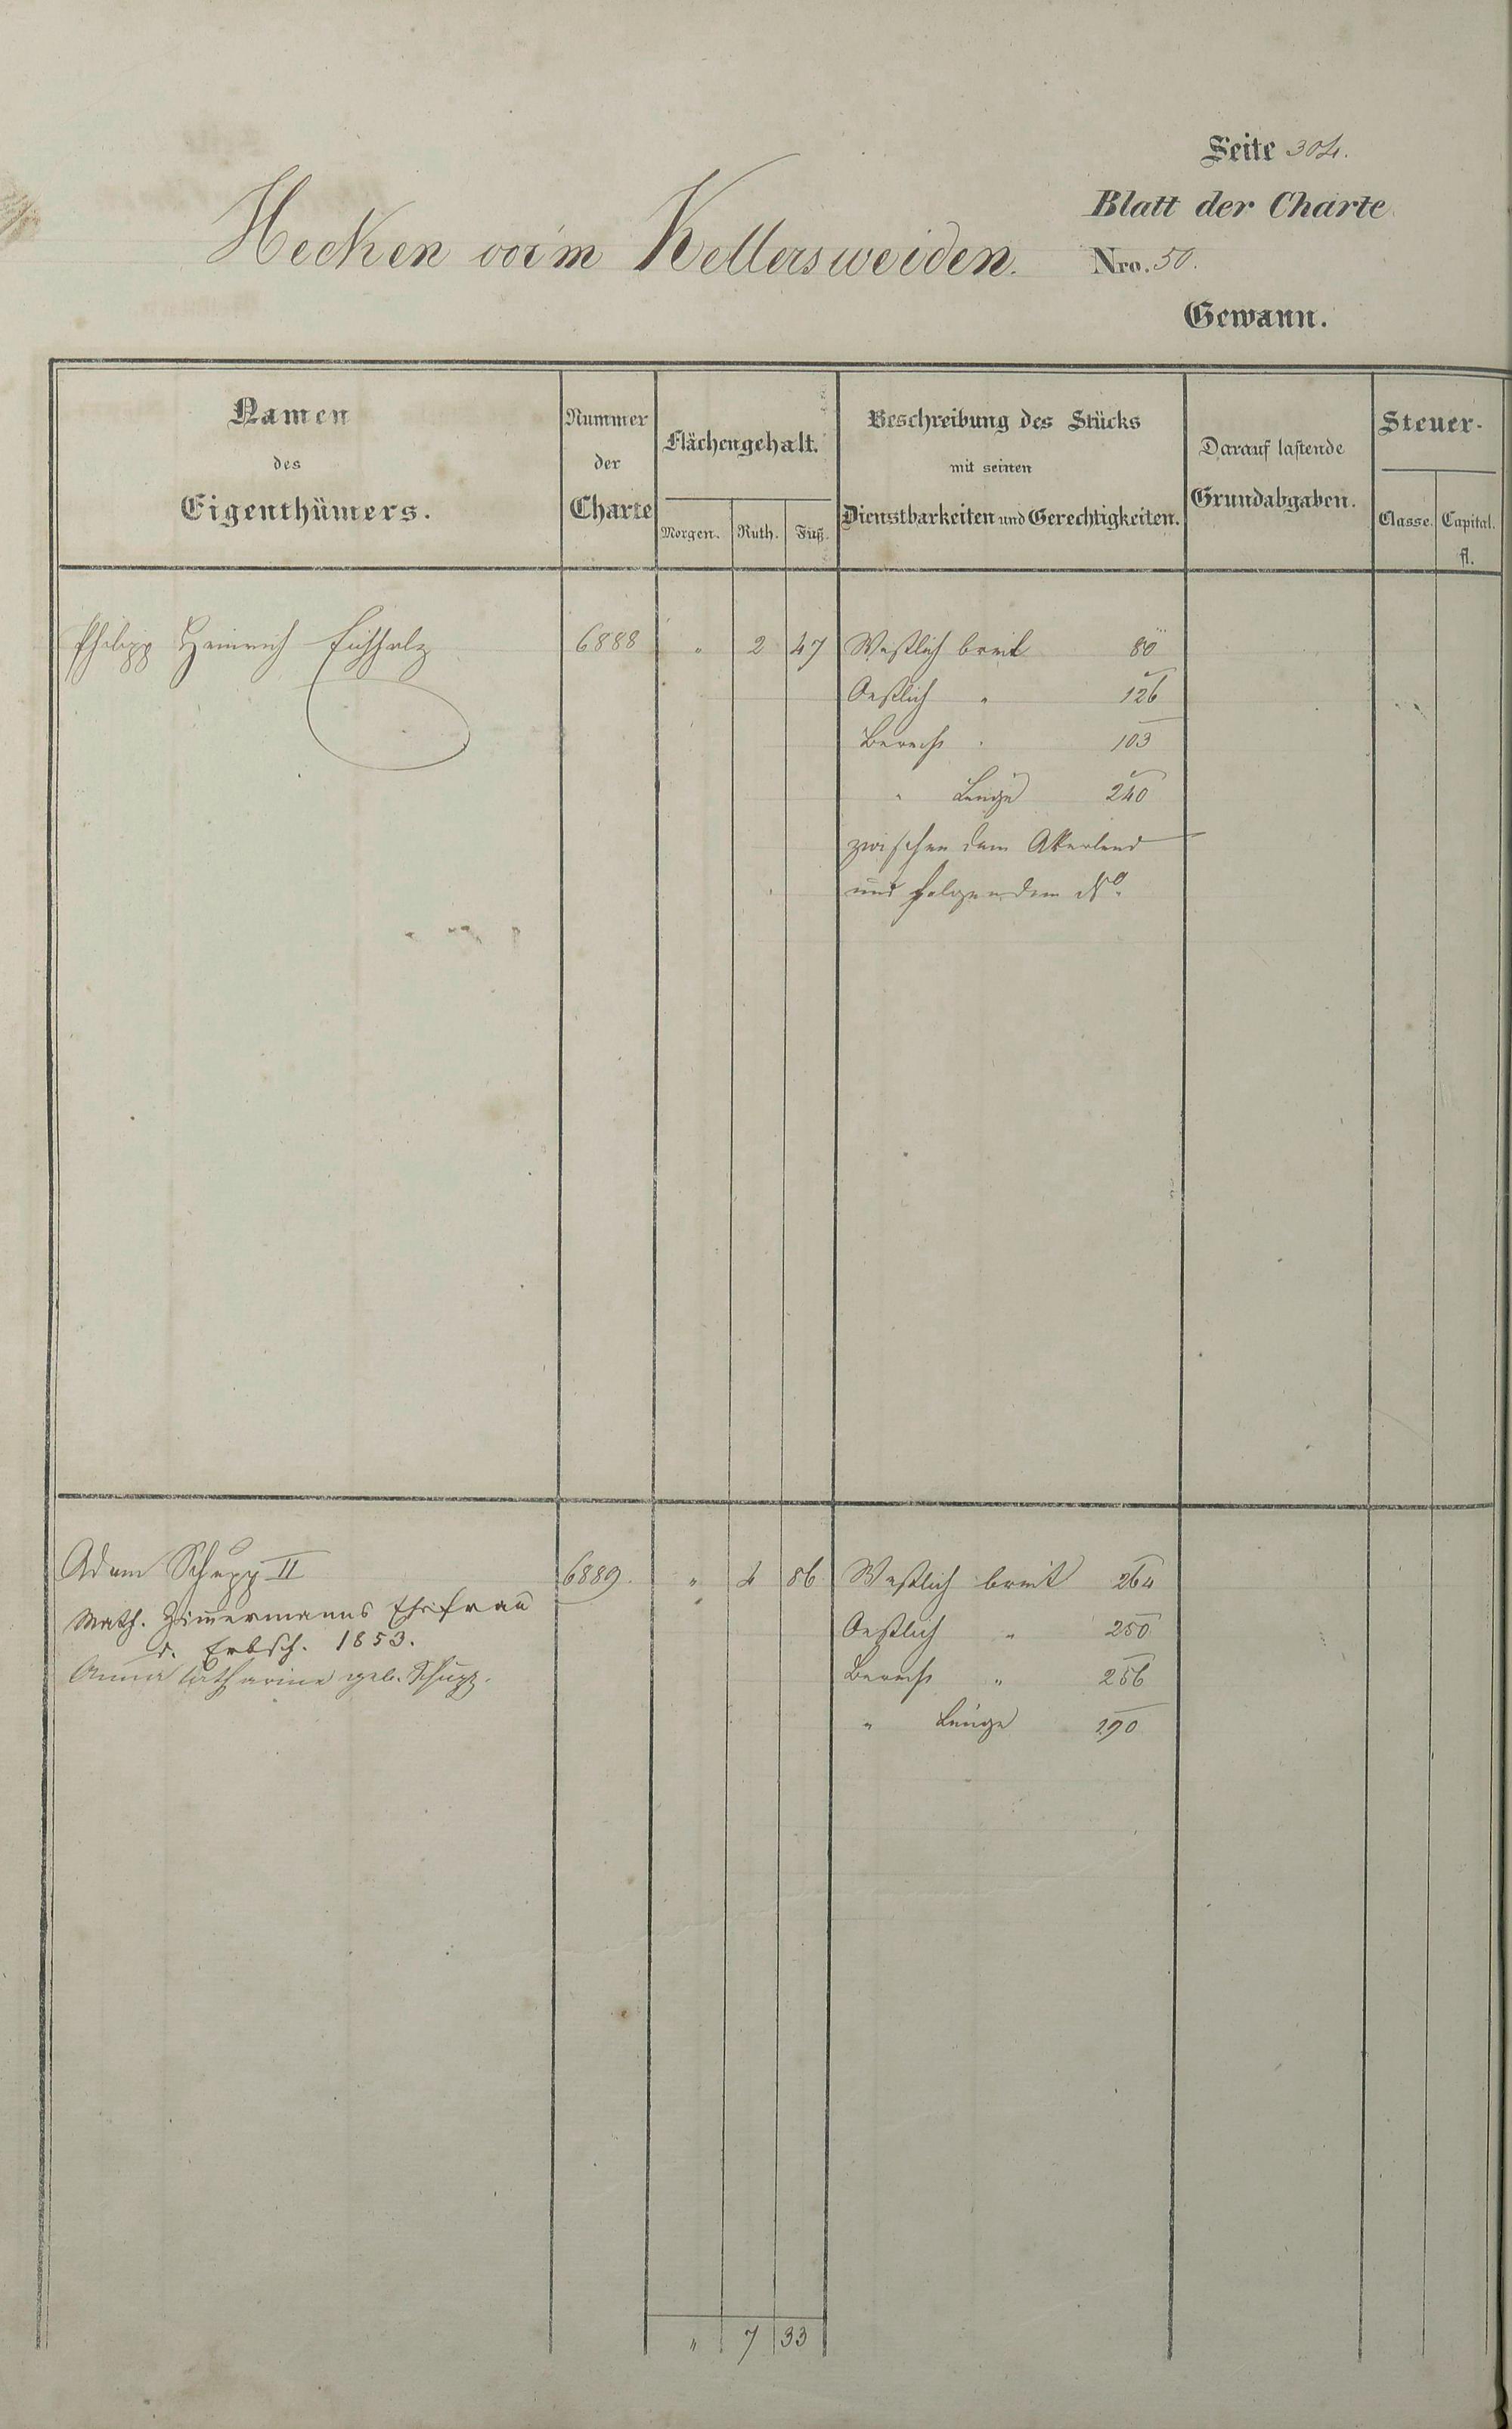 Seite 304.
Blatt der Charte
Hecken vorm Kellersweiden. Nro. 50.
Gewann.
Namen des Eigenthümers.
Nummer der Charte
Flächengehalt.
Morgen. Ruth. Fuß.
Beschreibung des Stücks mit seinen Dienstbarkeiten und Gerechtigkeiten.
Darauf lastende Grundabgaben.
Steuer-
Classe. Capital. fl.
Philipp Heinrich Eichholz 6888 " 2 47 Westlich breit 80
Oestlich " 126
Berecht " 103
" Länge 240
zwischen dem Akerland
und folgendem No.
Adam Schupp II 6889. " 4 86 Westlich breit 264
Math. Zimmermanns Ehefrau
d. Erbsch. 1853. Oestlich " 250
Anna Catharine geb. Schupp. Berecht " 256
" Länge 190
" 7 33